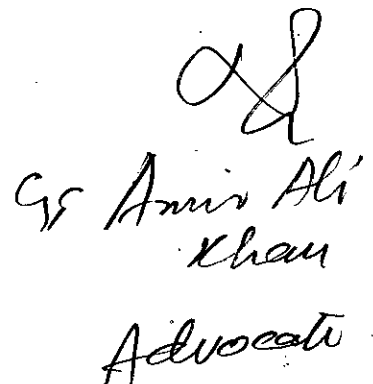 Amir Ali
Khan
Advocate